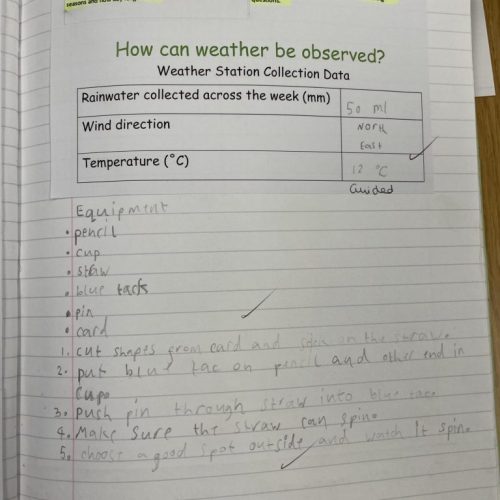 seasons and how day
questions.
How can weather be observed?
Weather Station Collection Data
Rainwater collected across the week (mm) 50 ml
Wind direction North East
Temperature (°C) 12 °C
Guided
Equipment
• pencil
• cup
• straw
• blue tack
• pin
• card
1. cut shapes from card and on the straw.
2. put blue tac on pencil and other end in
cup.
3. Push pin through straw into blue tac
4. Make sure the straw can spin.
5. choose a good spot outside and watch it spin.